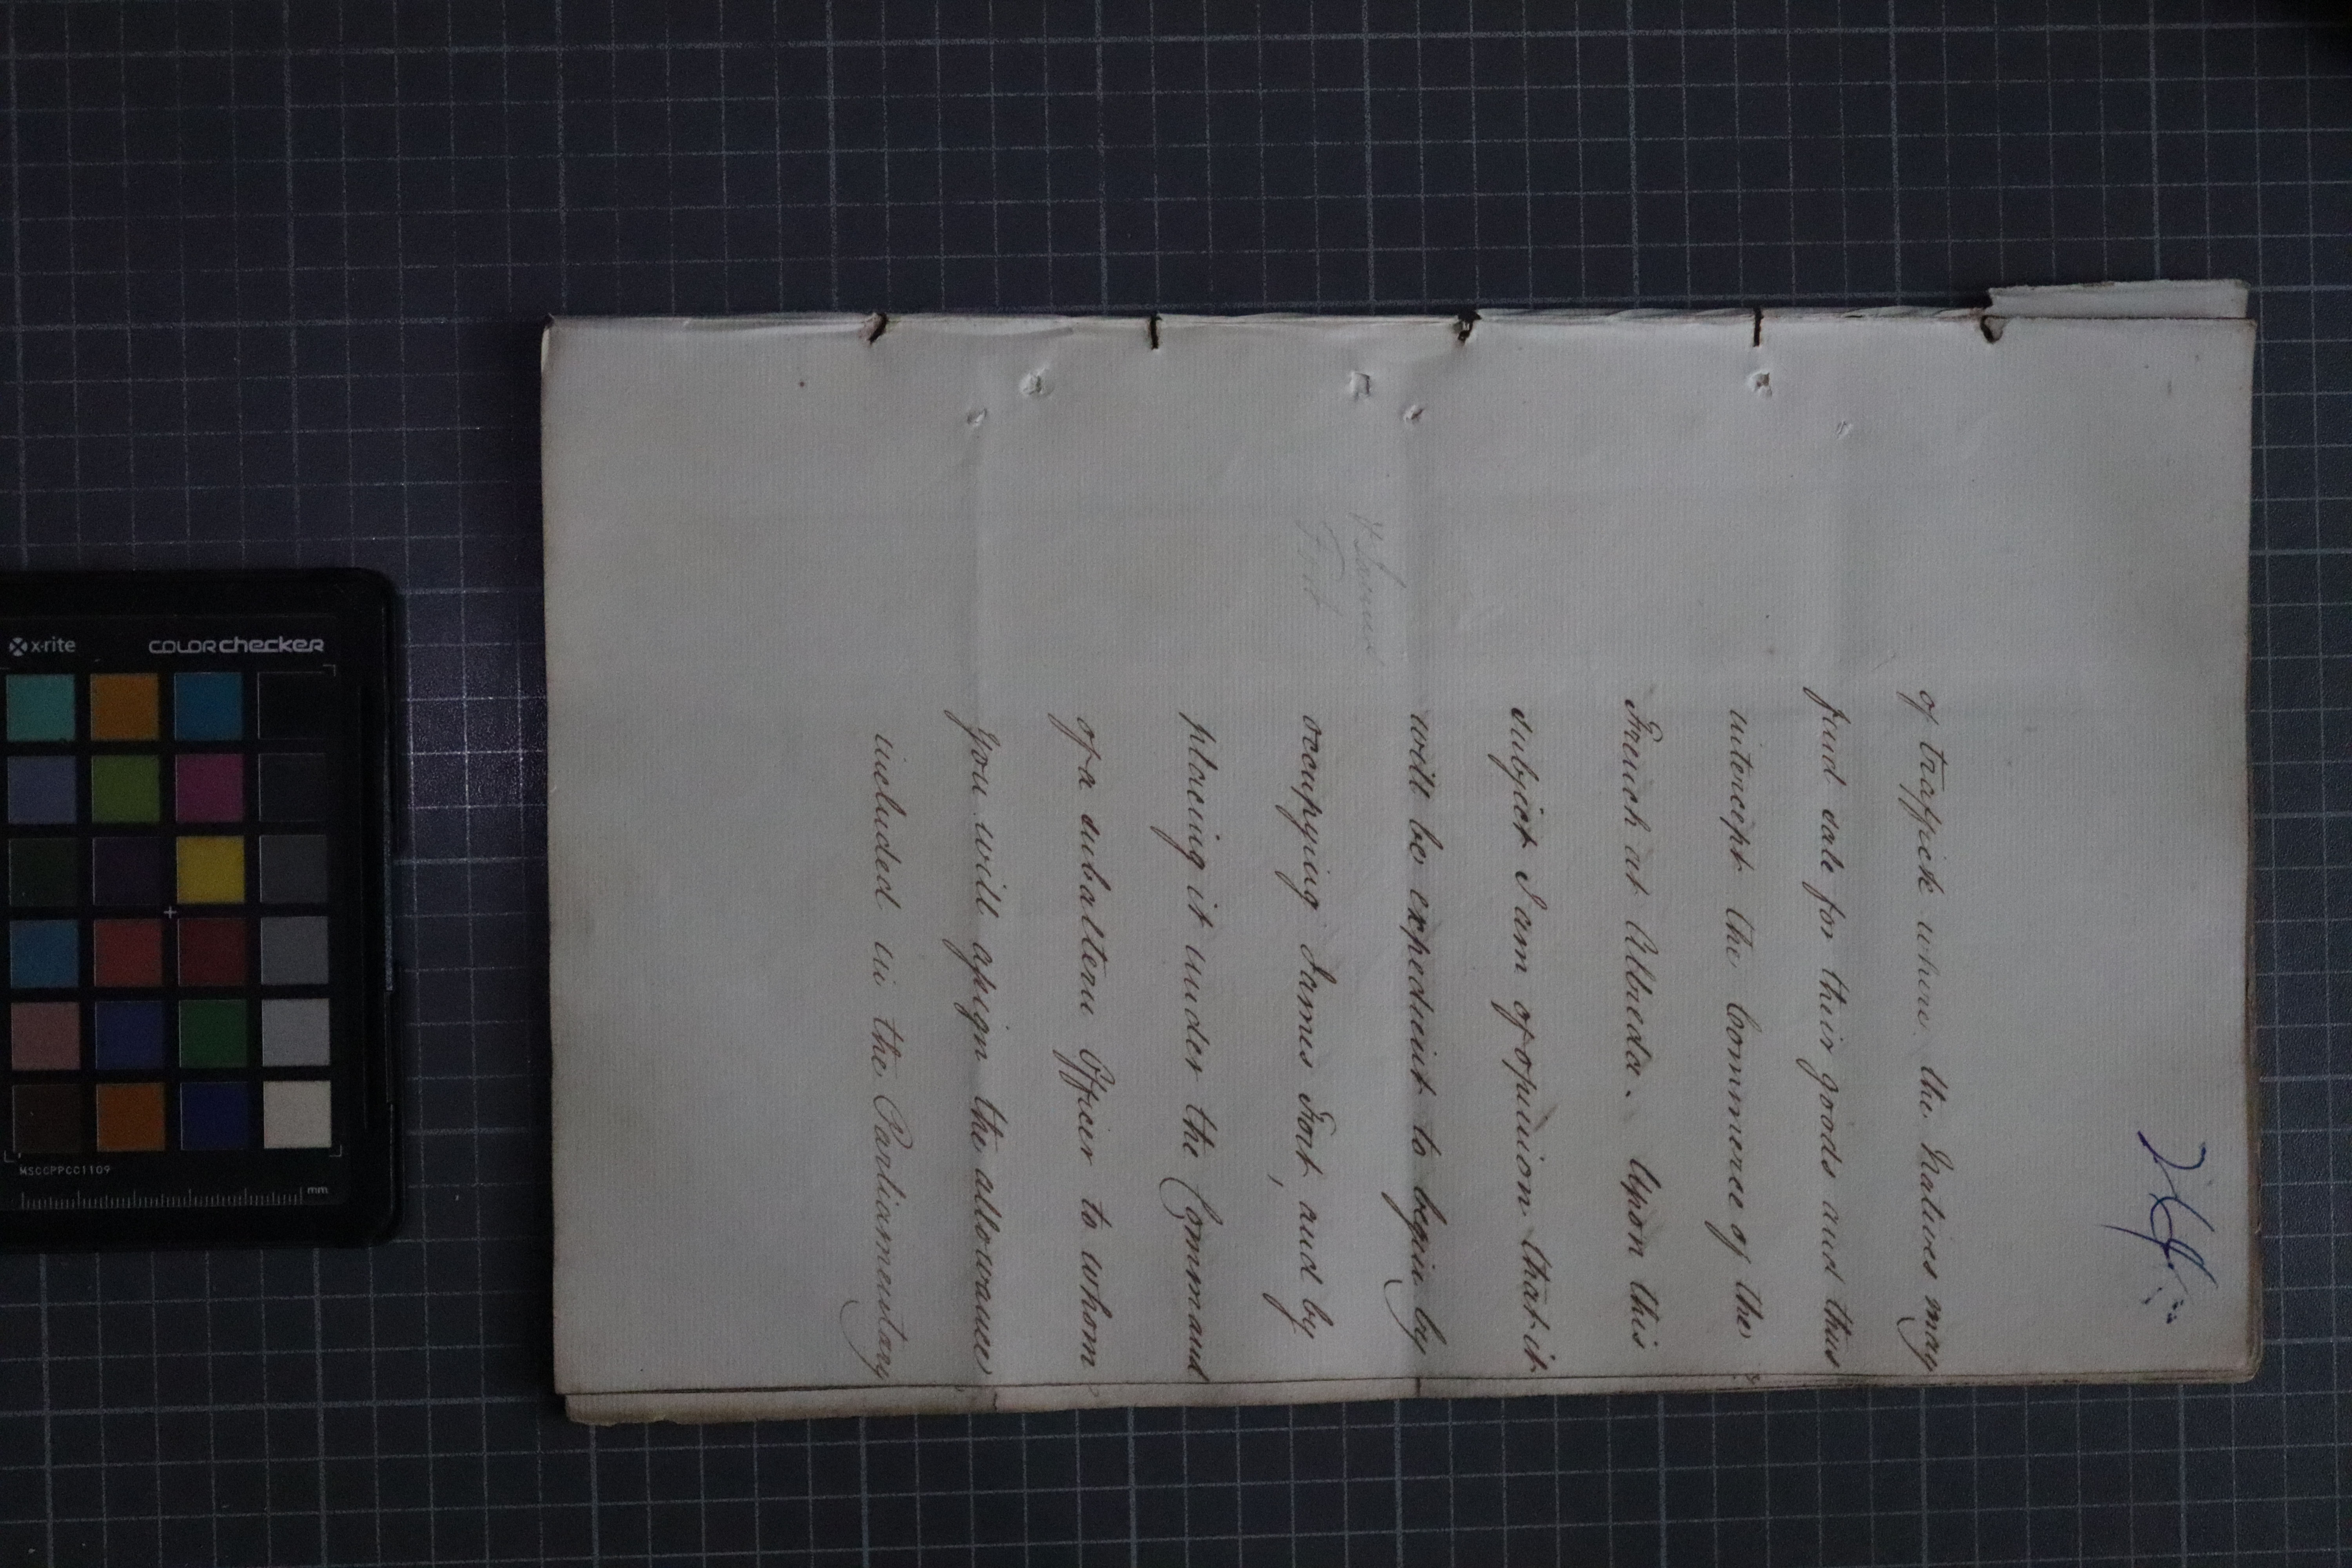 of traffick where the Natives may
find sale for their goods and thus
intercept the Commerce of the
French at Albreda. Upon this
subject I am of opinion that it
will be expedient to begin by
occupying James Fort, and by
placing it under the Command
of a subaltern Officer to whom
you will assign the allowance
included in the Parliamentary
Fort
x-rite
colorchecker
MSCCPPCC1109
mm